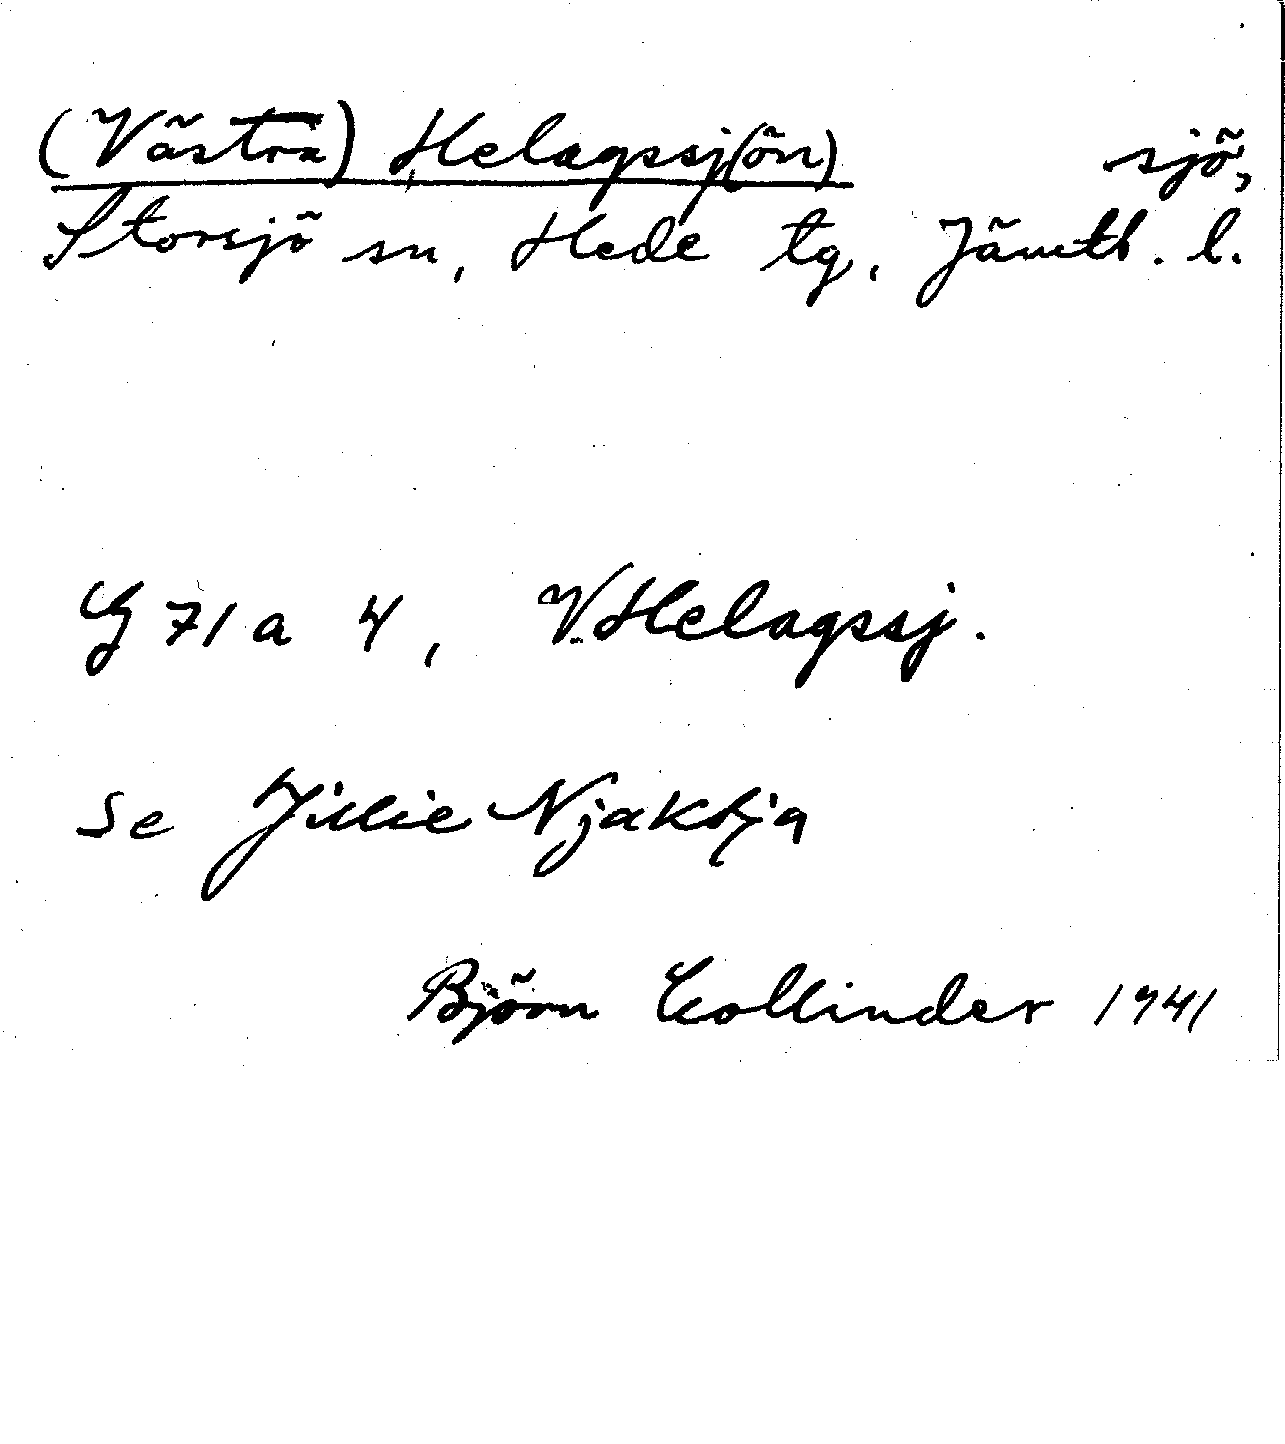 (Västra) Helagssj(ön) sjö,
Storsjö sn, Hede tg, Jämtl. l.
G 71 a 4, V. Helagssj.
Se Jillie Njaktja
Björn Collinder 1941